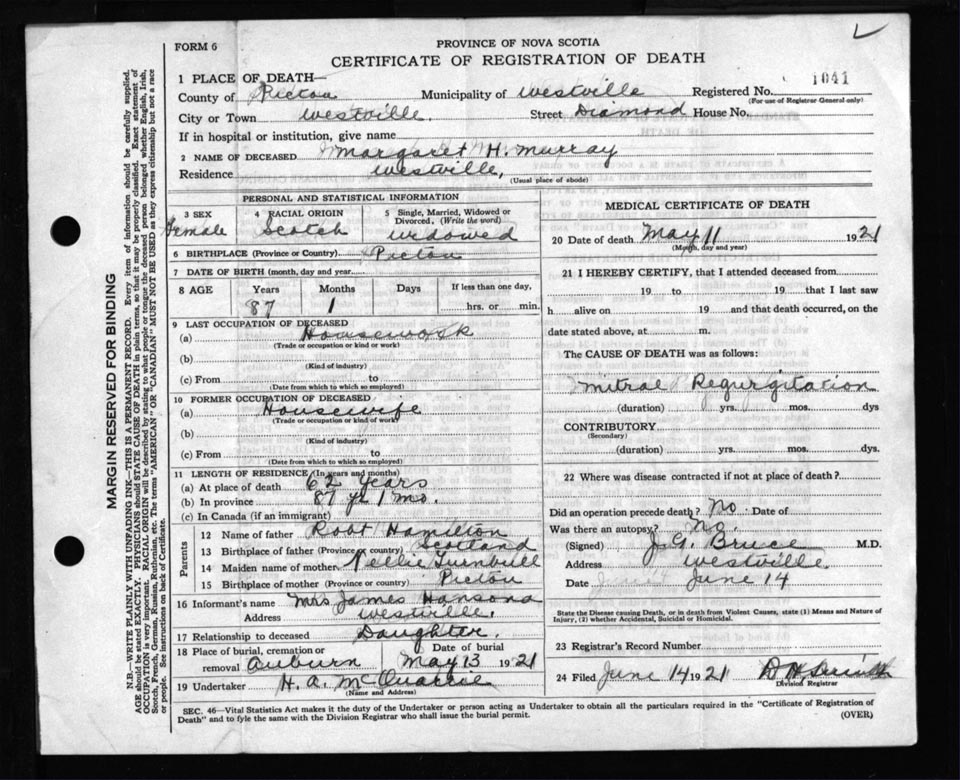 L
FORM 6
PROVINCE OF NOVA SCOTIA
CERTIFICATE OF REGISTRATION OF DEATH
1041
1 PLACE OF DEATH—
County of Pictou Municipality of Westville Registered No.
(For use of Registrar General only)
City or Town Westville. Street Diamond House No.
If in hospital or institution, give name
2 NAME OF DECEASED Margaret H. Murray
Residence Westville, (Usual place of abode)
PERSONAL AND STATISTICAL INFORMATION
3 SEX Female
4 RACIAL ORIGIN Scotch
5 Single, Married, Widowed or Divorced, (Write the word) widowed
6 BIRTHPLACE (Province or Country) Pictou
7 DATE OF BIRTH (month, day and year)
8 AGE Years Months Days If less than one day,
87 1 hrs. or min.
9 LAST OCCUPATION OF DECEASED
(a) Housework
(Trade or occupation or kind or work)
(b)
(Kind of industry)
(c) From to
(Date from which to which so employed)
10 FORMER OCCUPATION OF DECEASED
(a) Housewife
(Trade or occupation or kind of work)
(b)
(Kind of industry)
(c) From to
(Date from which to which so employed)
11 LENGTH OF RESIDENCE (In years and months)
(a) At place of death 62 years
(b) In province 87 yr 1 mo.
(c) In Canada (if an immigrant)
Parents
12 Name of father Robt Hamilton
13 Birthplace of father (Province or country) Scotland
14 Maiden name of mother Nellie Turnbull
15 Birthplace of mother (Province or country) Pictou
16 Informant's name Mrs James Hansona
Address Westville.
17 Relationship to deceased Daughter.
18 Place of burial, cremation or removal Auburn Date of burial May 13 1921
19 Undertaker H. A. McQuarrie
(Name and Address)
MEDICAL CERTIFICATE OF DEATH
20 Date of death May 11 1921
(Month, day and year)
21 I HEREBY CERTIFY, that I attended deceased from
19 to 19 that I last saw
h alive on 19 and that death occurred, on the
date stated above, at m.
The CAUSE OF DEATH was as follows:
Mitral Regurgitation
(duration) yrs. mos. dys
CONTRIBUTORY
(Secondary)
(duration) yrs. mos. dys
22 Where was disease contracted if not at place of death?
Did an operation precede death? No Date of
Was there an autopsy? No.
(Signed) J. G. Bruce M.D.
Address Westville.
Date June 14
State the Disease causing Death, or in death from Violent Causes, state (1) Means and Nature of
Injury, (2) whether Accidental, Suicidal or Homicidal.
23 Registrar's Record Number
24 Filed June 14 1921
Division Registrar
SEC. 46—Vital Statistics Act makes it the duty of the Undertaker or person acting as Undertaker to obtain all the particulars required in the "Certificate of Registration of
Death" and to fyle the same with the Division Registrar who shall issue the burial permit. (OVER)
MARGIN RESERVED FOR BINDING
N.B.—WRITE PLAINLY WITH UNFADING INK—THIS IS A PERMANENT RECORD. Every item of information should be carefully supplied.
AGE should be stated EXACTLY. PHYSICIANS should STATE CAUSE OF DEATH in plain terms, so that it may be properly classified. Exact statement of
OCCUPATION is very important. RACIAL ORIGIN will be described by stating to what people or tongue the deceased person belonged whether English, Irish,
Scotch, French, German, Russian, Ruthenian, etc. The terms "AMERICAN" OR "CANADIAN" MUST NOT BE USED as they express citizenship but not a race
or people. See instructions on back of Certificate.